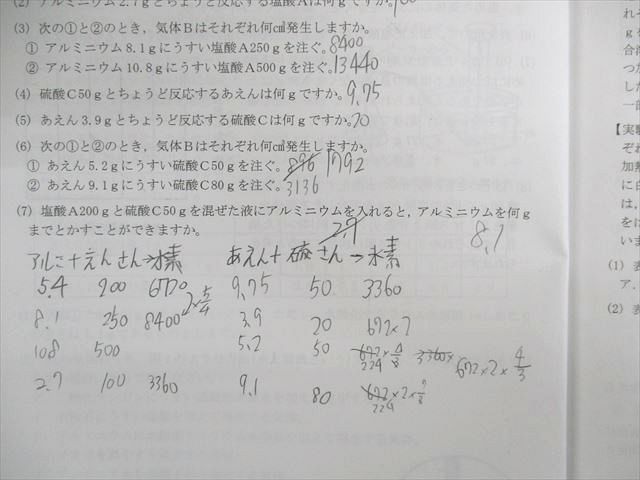 (2) アルミニウム2.7gとちょうど反応する塩酸Aは何gですか。100
(3) 次の①と②のとき，気体Bはそれぞれ何c㎥発生しますか。
① アルミニウム8.1gにうすい塩酸A250gを注ぐ。8400
② アルミニウム10.8gにうすい塩酸A500gを注ぐ。13440
(4) 硫酸C50gとちょうど反応するあえんは何gですか。9.75
(5) あえん3.9gとちょうど反応する硫酸Cは何gですか。20
(6) 次の①と②のとき，気体Bはそれぞれ何c㎥発生しますか。
① あえん5.2gにうすい硫酸C50gを注ぐ。896 1792
② あえん9.1gにうすい硫酸C80gを注ぐ。3136
(7) 塩酸A200gと硫酸C50gを混ぜた液にアルミニウムを入れると，アルミニウムを何g
までとかすことができますか。 2.7 8.1
アルミ+えんさん→水素 あえん+硫さん→水素
5.4 200 6720 9.75 50 3360
8.1 250 8400 3.9 20 672×2
108 500 5.2 50
2.7 100 3360 9.1 80
【実験
(1) 表
ア.
(2) 表